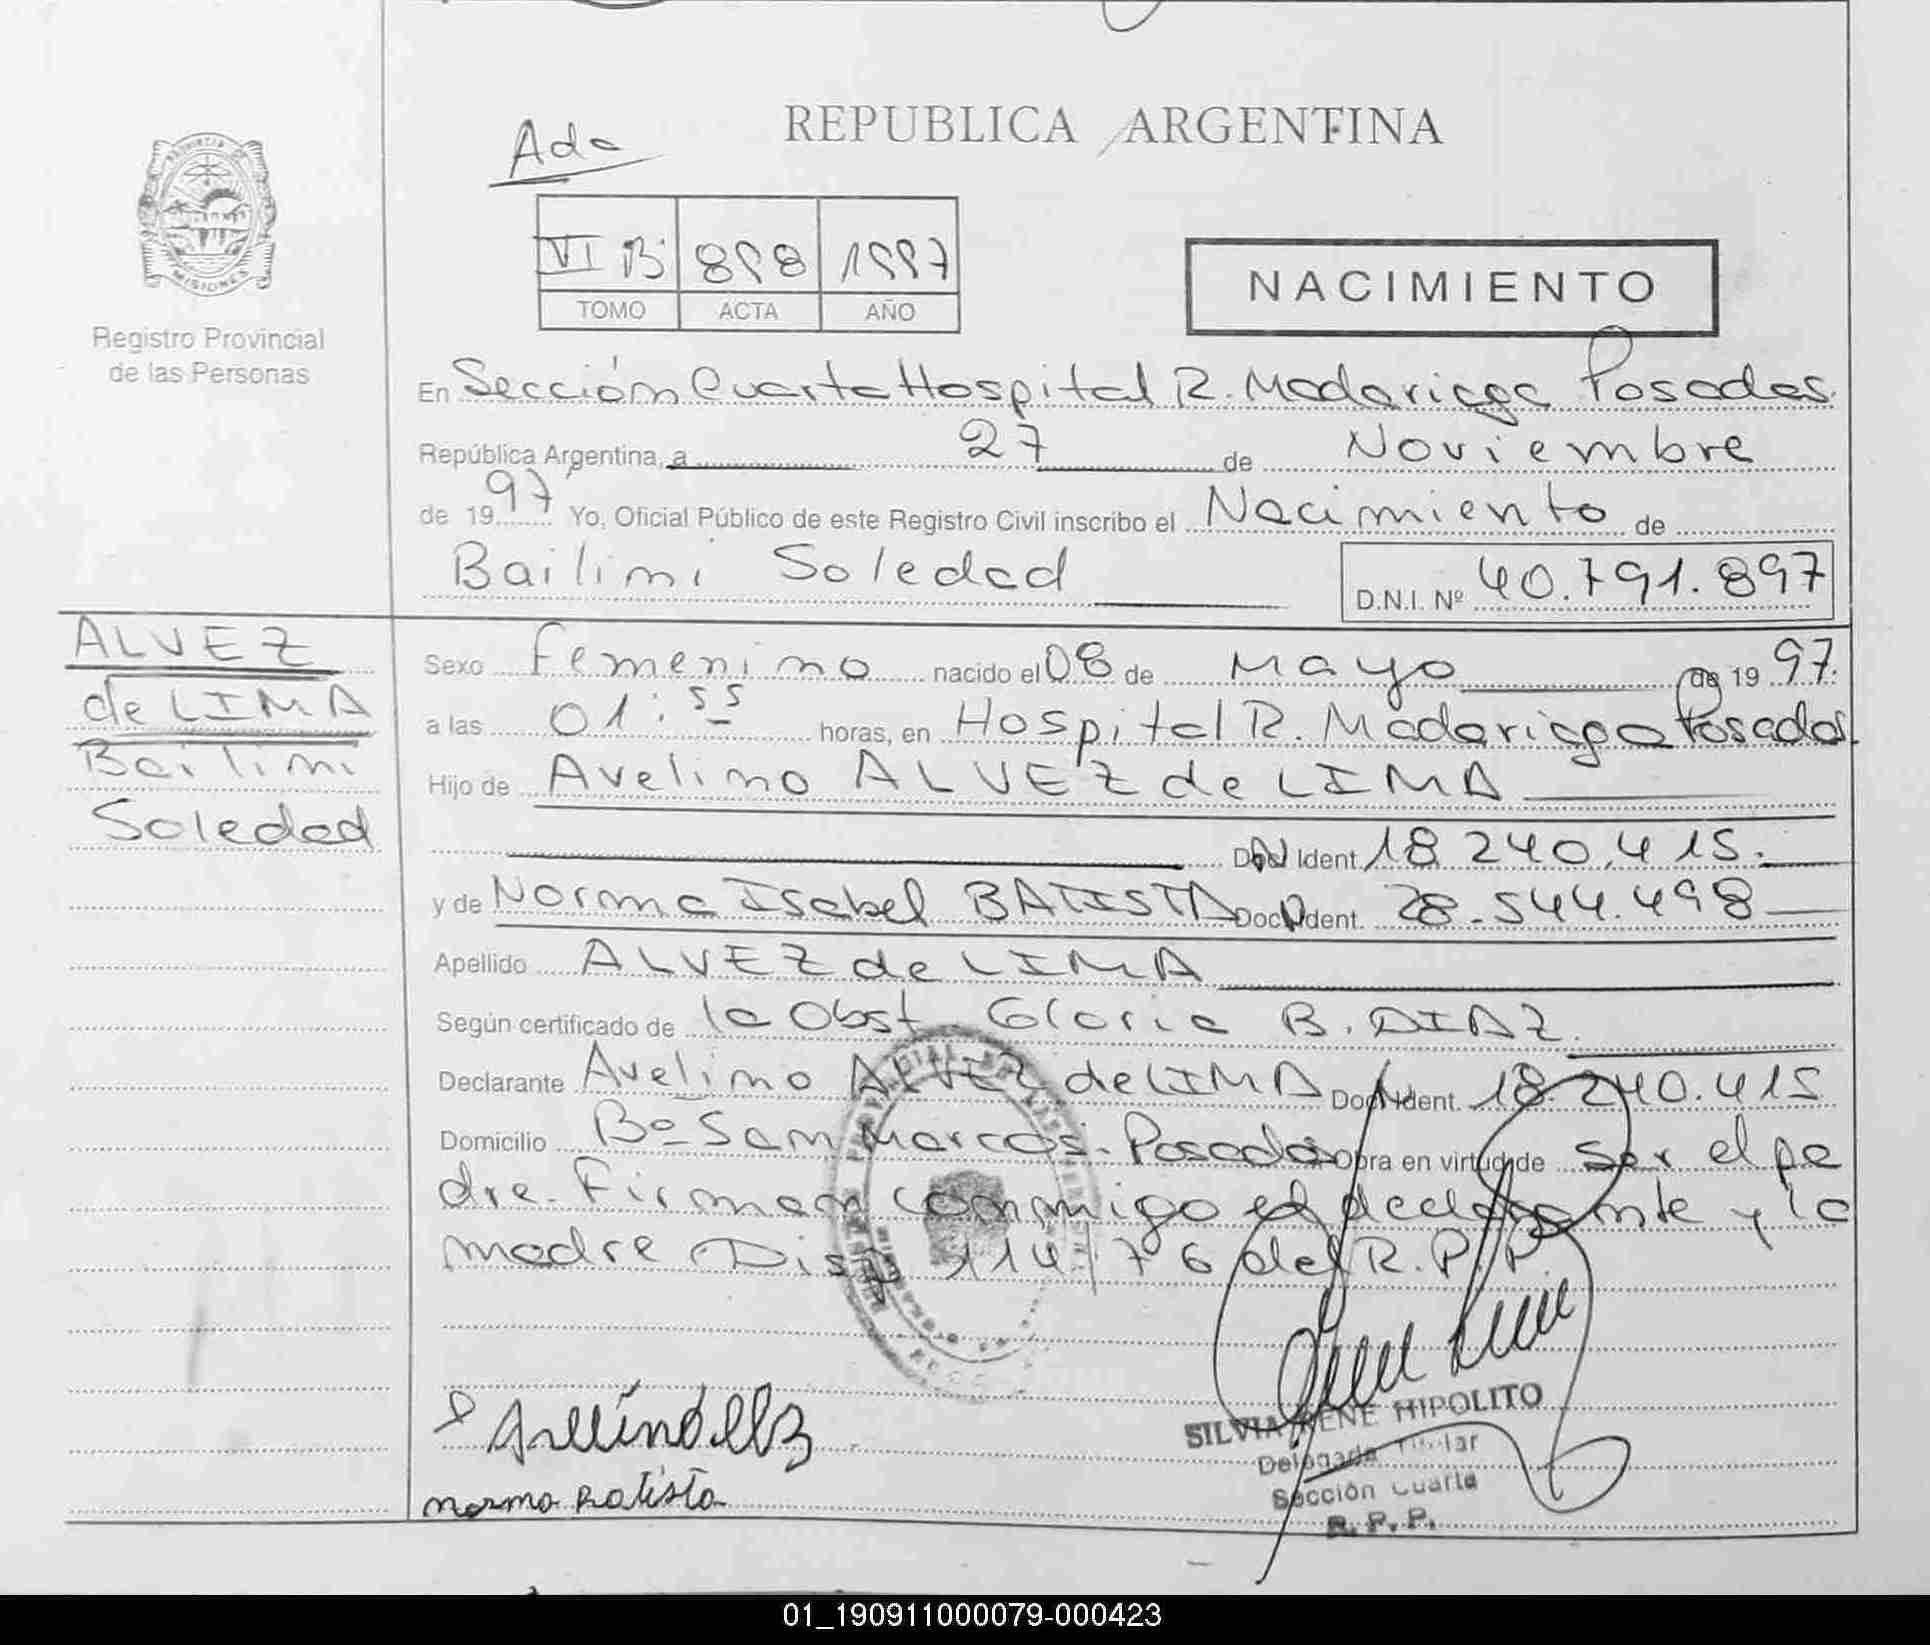 Ada
REPUBLICA ARGENTINA
PROVINCIA DE
MISIONES
Registro Provincial
de las Personas
VI B 898 1997
TOMO ACTA AÑO
NACIMIENTO
En Sección Cuarta Hospital R. Madariaga Posadas.
República Argentina, a 27 de Noviembre
de 1997 Yo, Oficial Público de este Registro Civil inscribo el Nacimiento de
Bailimi Soledad D.N.I. Nº 40.791.897
ALVEZ
de LIMA
Bailimi
Soledad
Sexo Femenino nacido el 08 de Mayo de 1997.
a las 01:55 horas, en Hospital R. Madariaga Posadas.
Hijo de Avelino ALVEZ de LIMA
Doc. Ident. 18.240.415.
y de Norma Isabel BATISTA Doc. Ident. 28.544.498
Apellido ALVEZ de LIMA
Según certificado de la Obst. Gloria B. DIAZ.
Declarante Avelino ALVEZ de LIMA Doc. Ident. 18.240.415
Domicilio Bº San Marcos. Posadas Obra en virtud de Ser el pa
dre. Firman conmigo el declarante y la
madre Disp. 114/76 del R.P.P.
norma Batista
SILVIA IRENE HIPOLITO
Delegada Titular
Sección Cuarta
R.P.P.
01_190911000079-000423